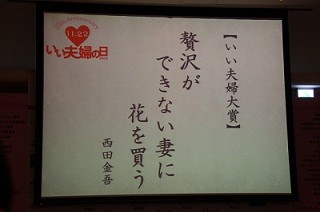 11.22
いい夫婦の日
【いい夫婦大賞】
贅沢が
できない妻に
花を買う
西田金吾